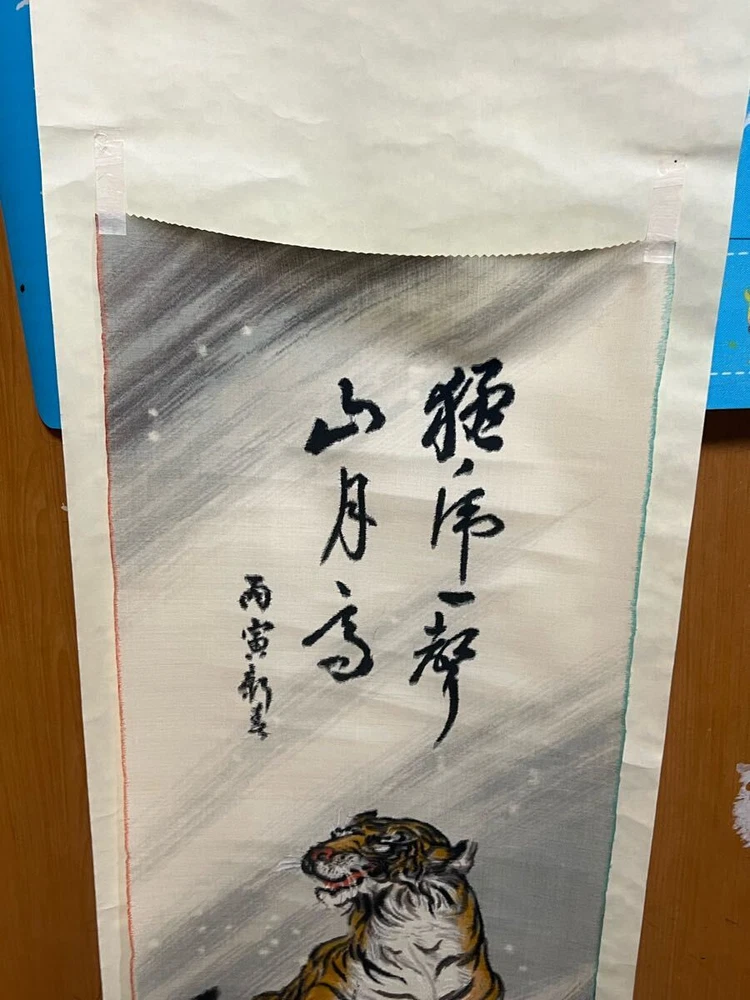 猛虎一聲
山月高
丙寅新春